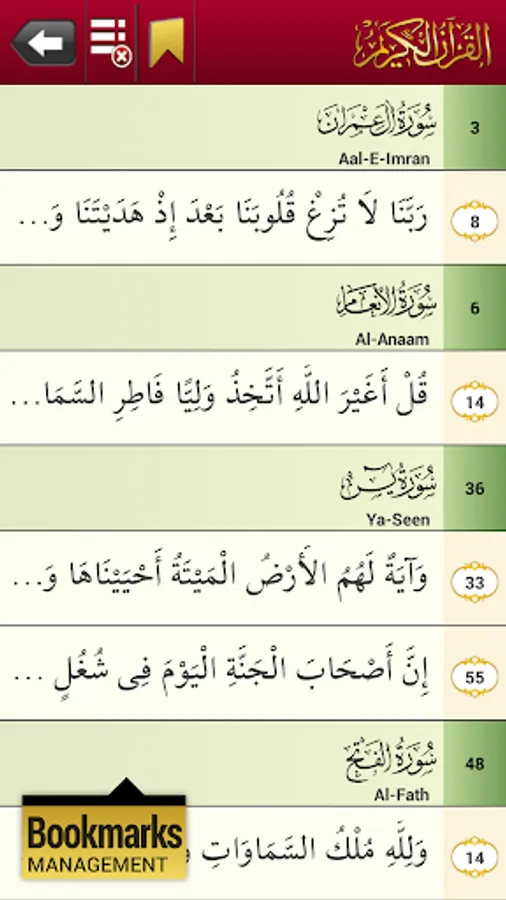 القرآن الكريم
سورة آل عمران
3
Aal-E-Imran
رَبَّنَا لَا تُزِغْ قُلُوبَنَا بَعْدَ إِذْ هَدَيْتَنَا وَ...
8
سورة الأنعام
6
Al-Anaam
قُلْ أَغَيْرَ اللَّهِ أَتَّخِذُ وَلِيًّا فَاطِرِ السَّمَا...
14
سورة يس
36
Ya-Seen
وَآيَةٌ لَهُمُ الْأَرْضُ الْمَيْتَةُ أَحْيَيْنَاهَا وَ...
33
إِنَّ أَصْحَابَ الْجَنَّةِ الْيَوْمَ فِى شُغُلٍ ...
55
سورة الفتح
48
Al-Fath
وَلِلَّهِ مُلْكُ السَّمَاوَاتِ
14
Bookmarks
MANAGEMENT